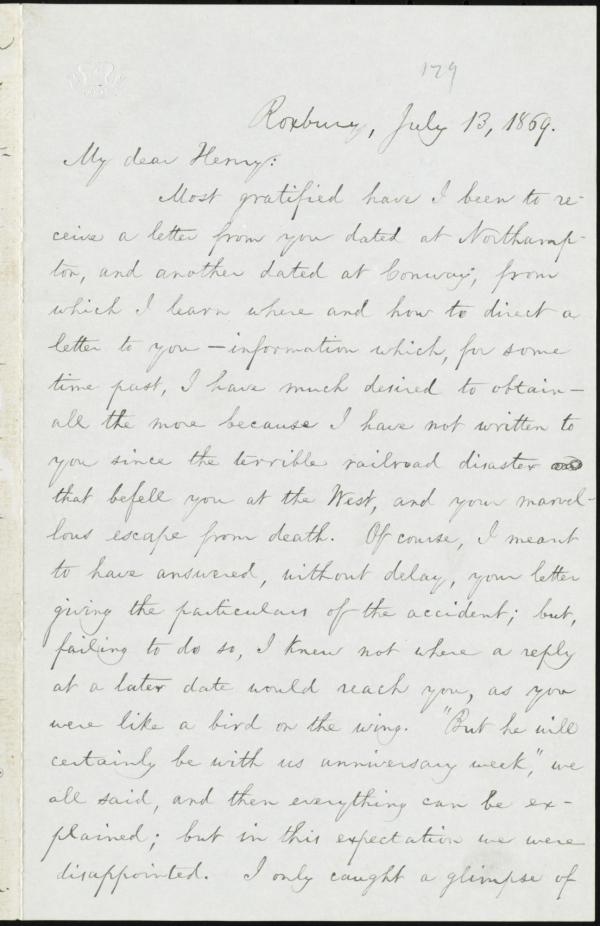 179
Roxbury, July 13, 1869.
My dear Henry:
Most gratified have I been to re-
ceive a letter from you dated at Northamp-
ton, and another dated at Conway, from
which I learn where and how to direct a
letter to you — information which, for some
time past, I have much desired to obtain —
all the more because I have not written to
you since the terrible railroad disaster
that befell you at the West, and your marvel-
lous escape from death. Of course, I meant
to have answered, without delay, your letter
giving the particulars of the accident; but,
failing to do so, I knew not where a reply
at a later date would reach you, as you
were like a bird on the wing. "But he will
certainly be with us anniversary week," we
all said, and then everything can be ex-
plained; but in this expectation we were
disappointed. I only caught a glimpse of